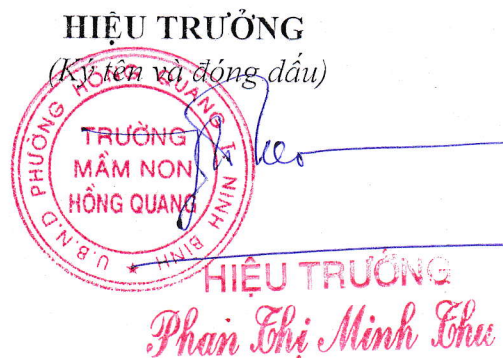 HIỆU TRƯỞNG
(Ký tên và đóng dấu)
U.B.N.D PHƯỜNG HỒNG QUANG T. NINH BÌNH
TRƯỜNG
MẦM NON
HỒNG QUANG
HIỆU TRƯỞNG
Phan Thị Minh Thu